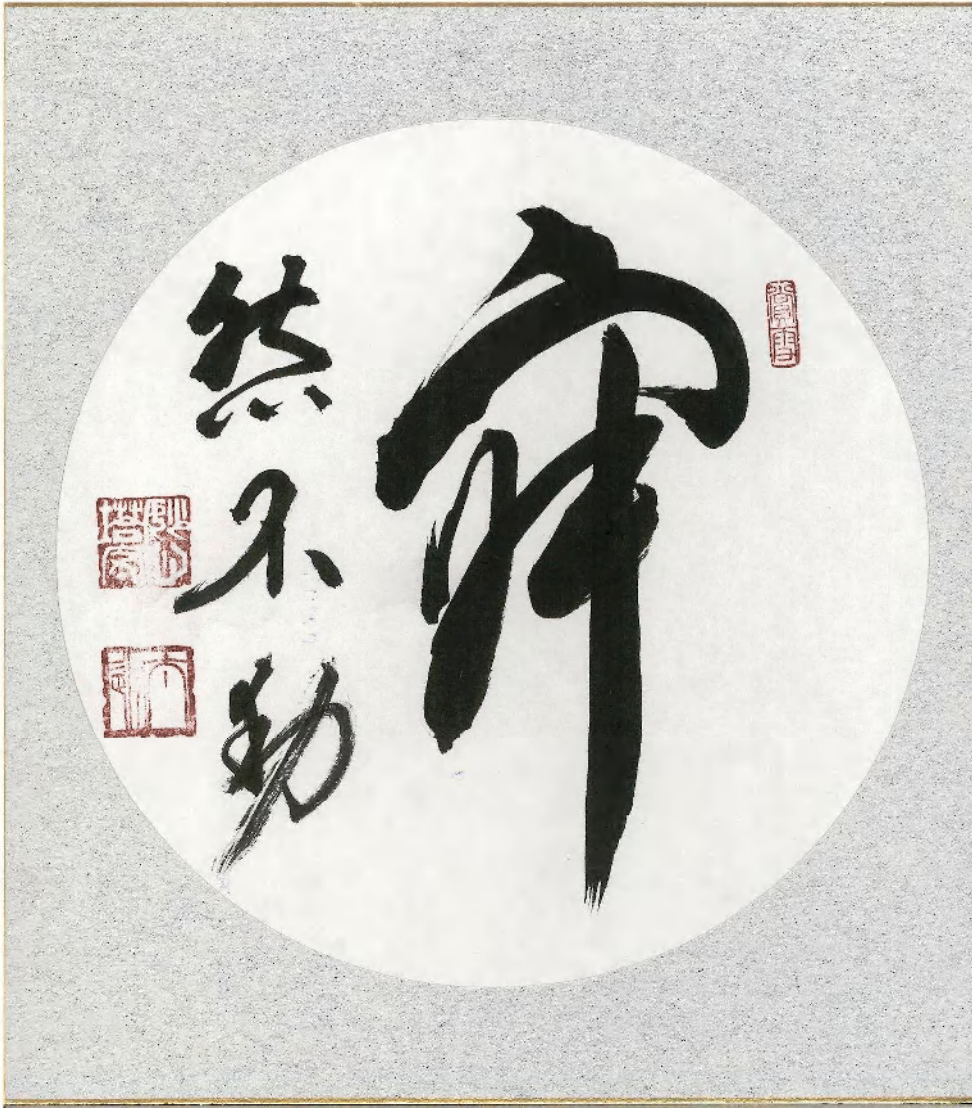 寂
然不動